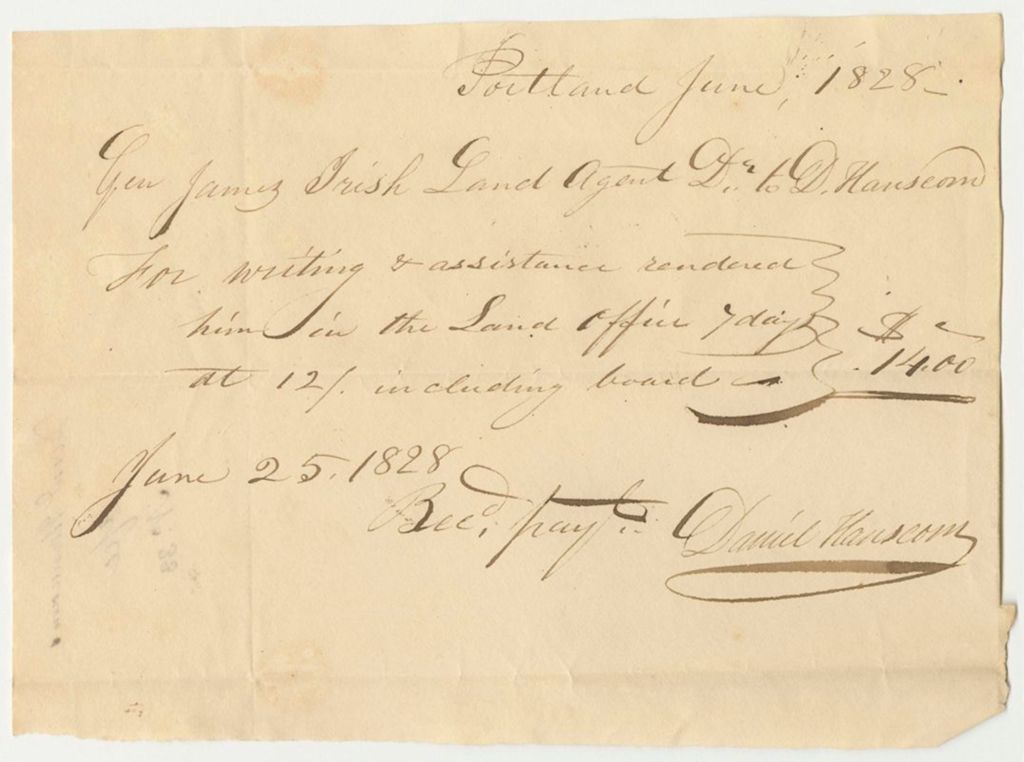 Portland June, 1828.
Gen James Irish Land Agent Dr. to D. Hanscom
For writing & assistance rendered
him in the Land office 7 days $
at 12/. including board 14.00
June 25. 1828
Recd. payt. Daniel Hanscom